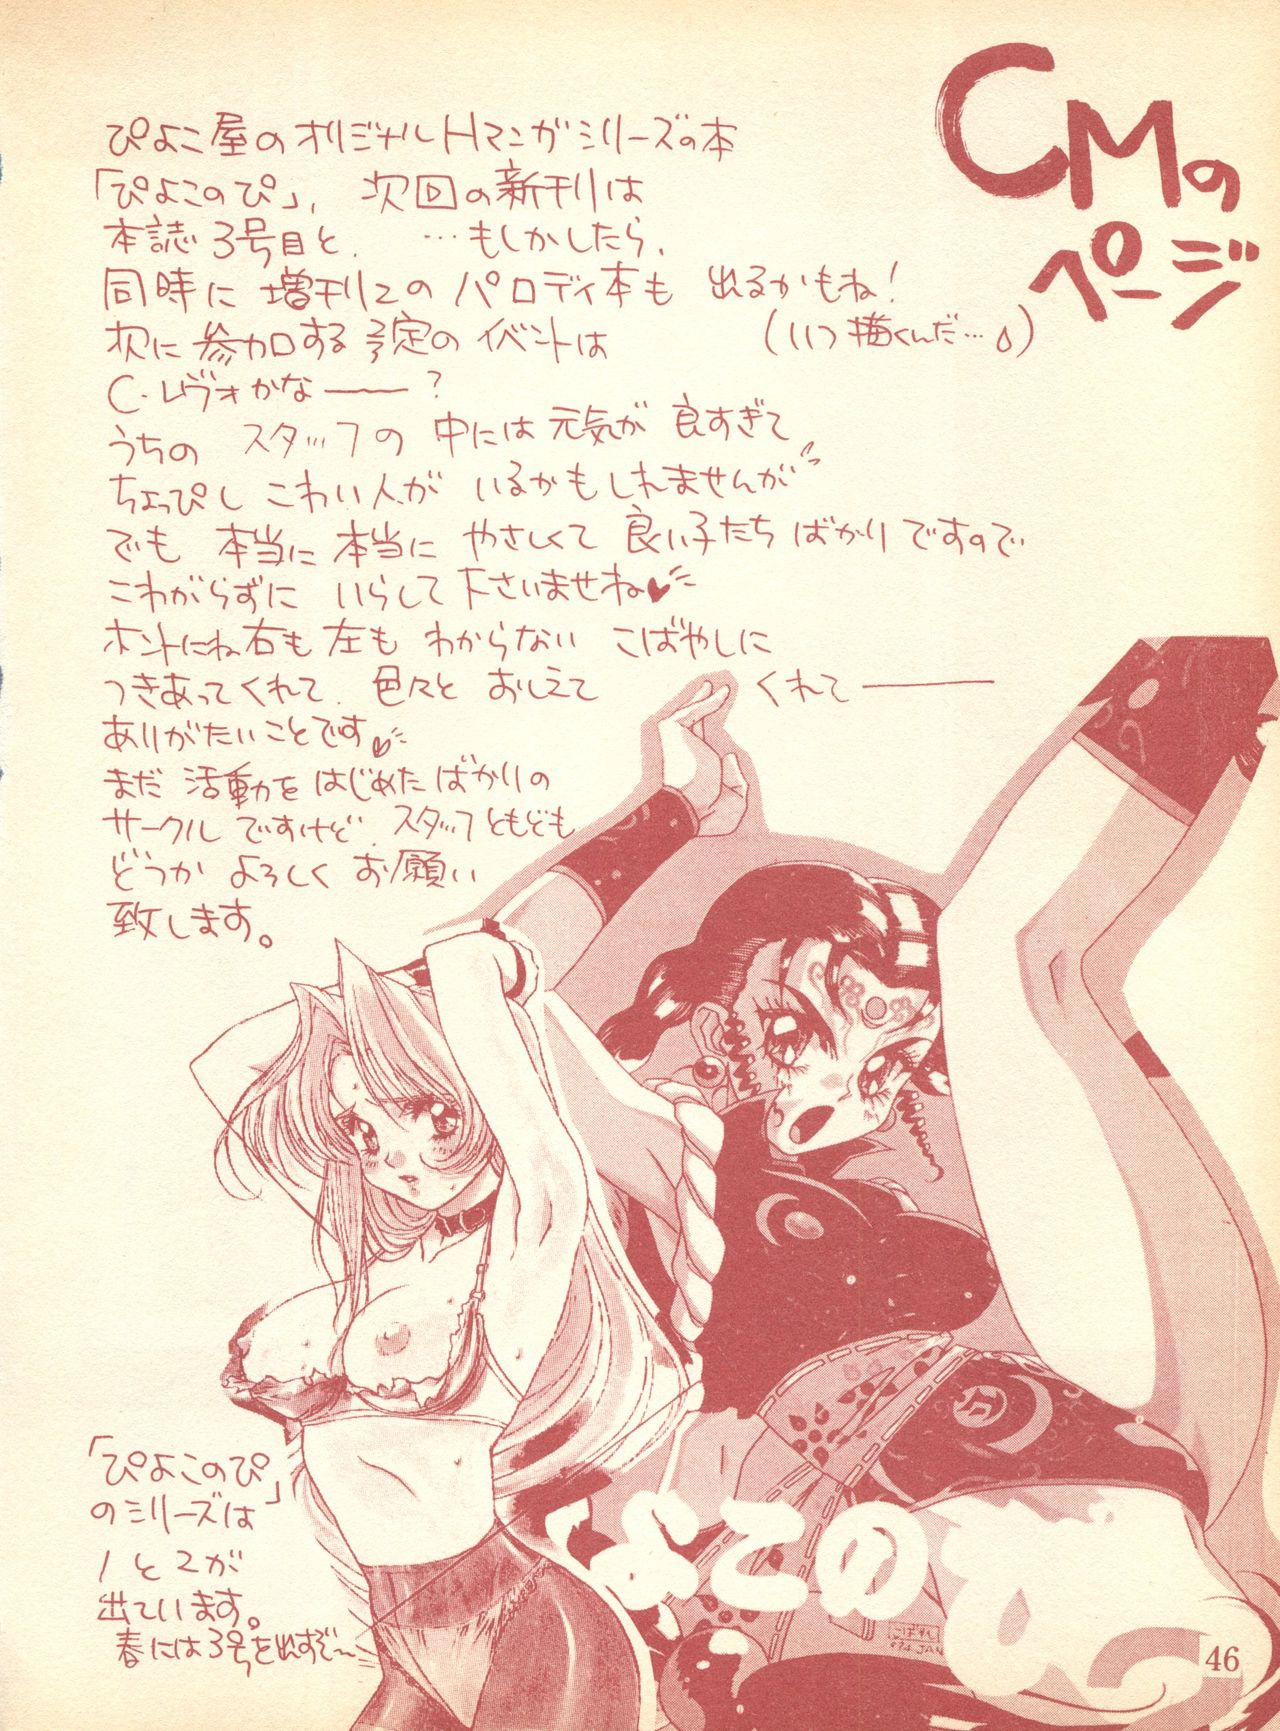 CMの
ページ
ぴよこ屋のオリジナルHマンガシリーズの本
「ぴよこのぴ」、次回の新刊は
本誌3号目と、…もしかしたら、
同時に増刊2のパロディ本も出るかもね!
(いつ描くんだ…)
次に参加する予定のイベントは
C・レヴォかなー?
うちのスタッフの中には元気が良すぎて
ちょっぴしこわい人がいるかもしれませんが
でも本当に本当にやさしくて良い子たちばかりですので
こわがらずにいらして下さいませね♥
ホントにね右も左もわからないこばやしに
つきあってくれて、色々とおしえてくれて――
ありがたいことです♥
まだ活動をはじめたばかりの
サークルですけど、スタッフともども
どうかよろしくお願い
致します。
「ぴよこのぴ」
のシリーズは
1と2が
出ています。
春には3号を出すぞ〜
よこのぴ
46